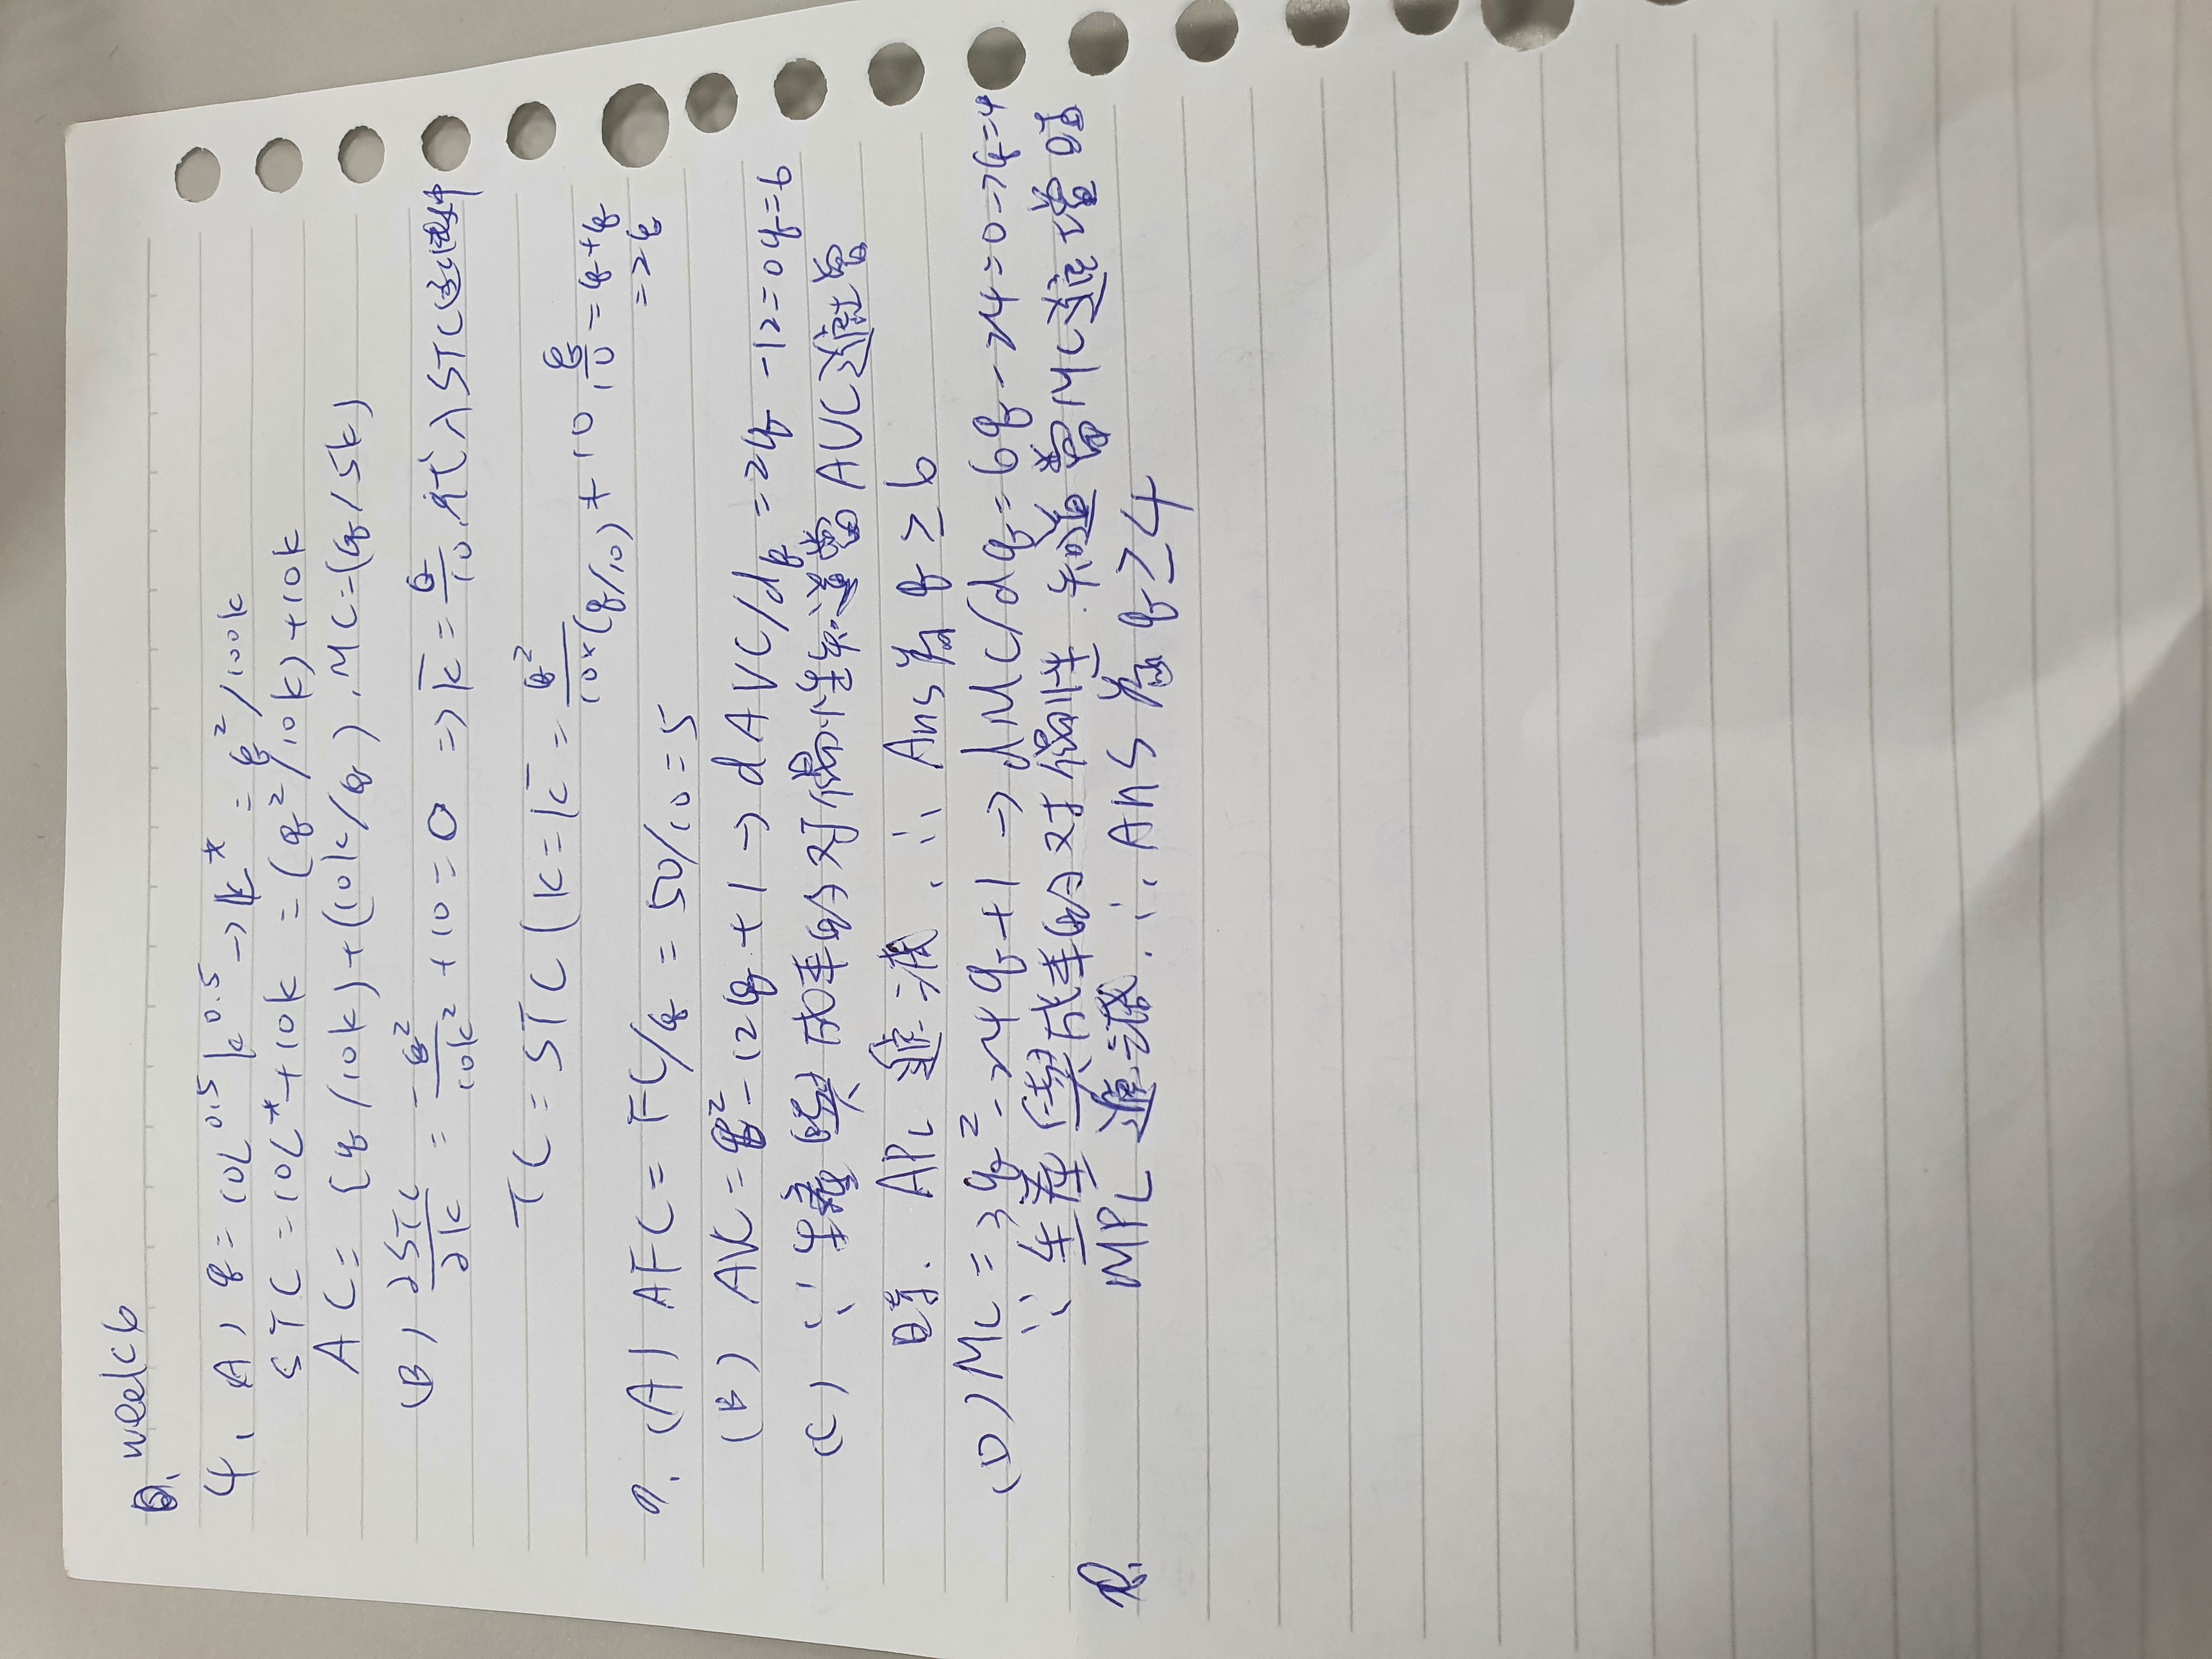 week6
4. A) q = 10L^0.5 k^0.5 → k* = q²/100k
STC = 10L* + 10k = (q²/10k) + 10k
AC = (q/10k) + (10k/q), MC = (q/5k)
(B) ∂STC/∂k = -q²/10k² + 10 = 0 ⇒ k̄ = q/10 代入STC
TC = STC (k = k̄ = q²/(10×(q/10)) + 10 q/10 = q + q
= 2q
7. (A) AFC = FC/q = 50/10 = 5
(B) AVC = q² - 12q + 1 → dAVC/dq = 2q - 12 = 0 q = 6
(C) ∵ 生產與成本的对偶性知道當AVC遞增
時. APL 遞減, ∴ Ans為 q ≥ 6
(D) MC = 3q² - 24q + 1 → dMC/dq = 6q - 24 = 0 → q = 4
∵ 生產與成本的对偶性 知道當MC遞增時
MPL 遞減. ∴ Ans 為 q ≥ 4